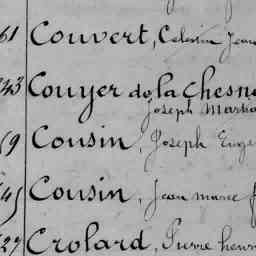 61 Couvert, Celestin Jean
343 Couyer de la Chesn
Joseph Martia
69 Cousin, Joseph Euge
45 Cousin, Jean marie f
27 Crolard, Pierre henri